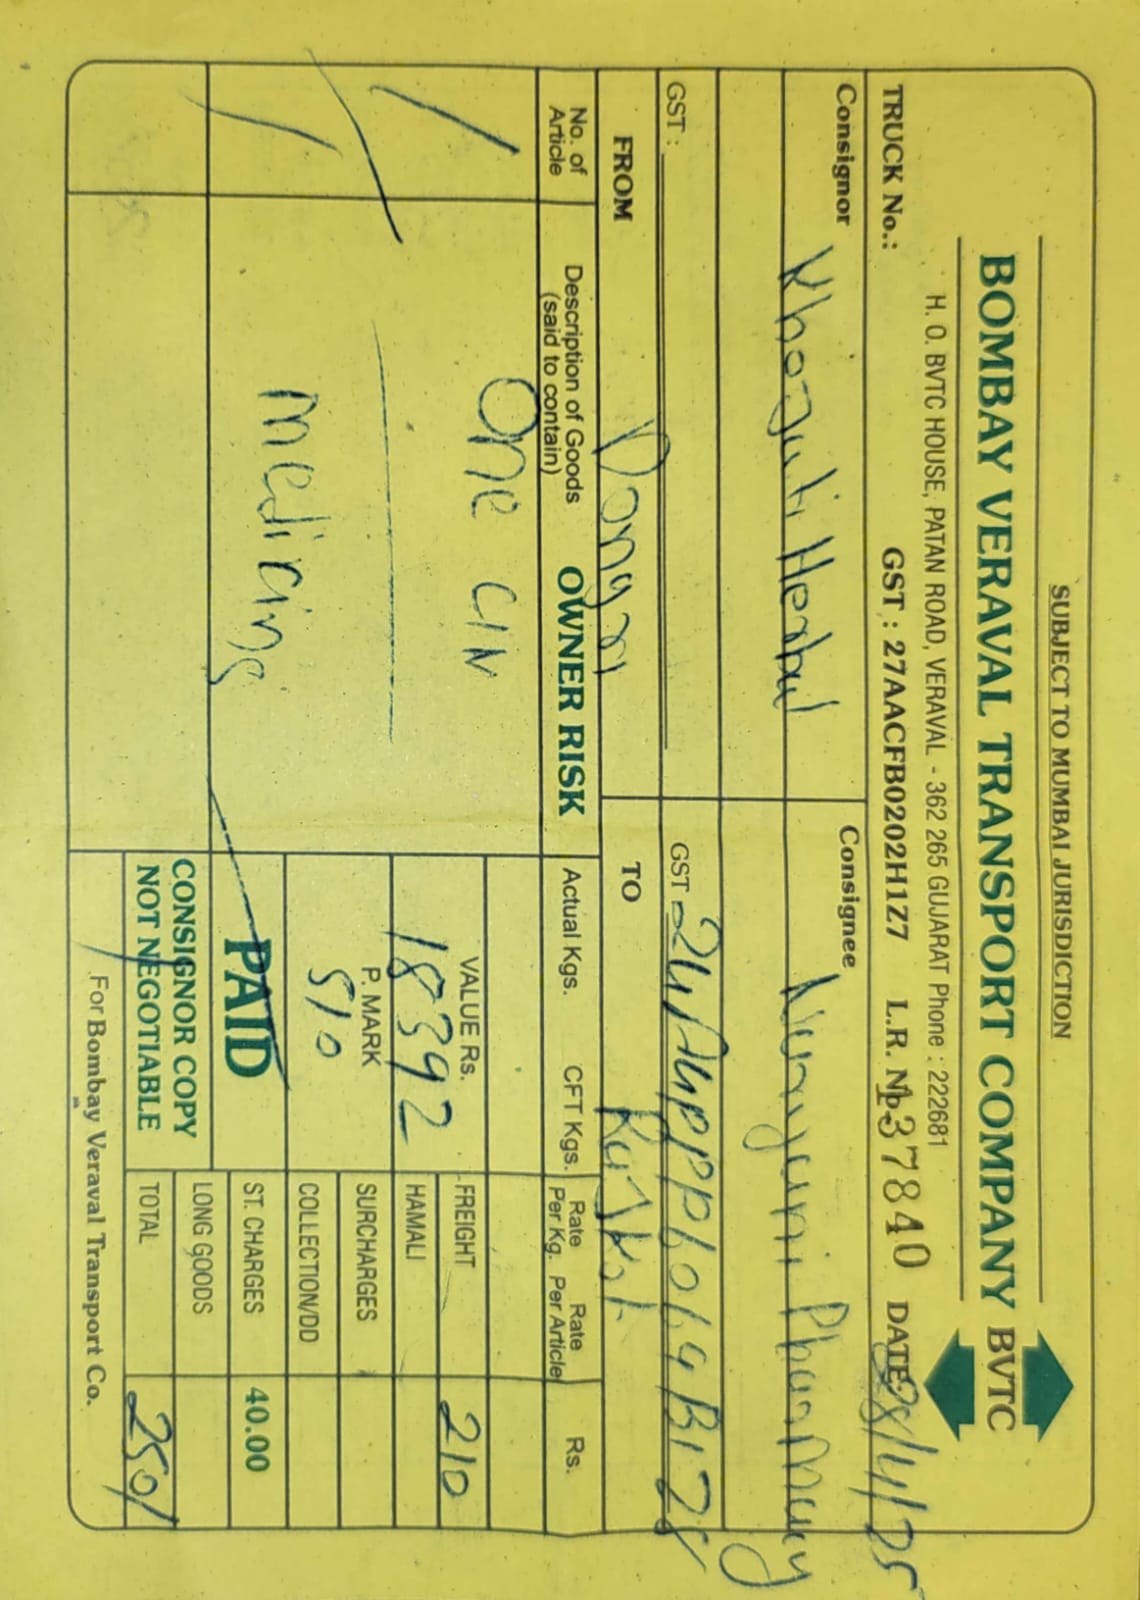 SUBJECT TO MUMBAI JURISDICTION
BOMBAY VERAVAL TRANSPORT COMPANY BVTC
H. O. BVTC HOUSE, PATAN ROAD, VERAVAL - 362 265 GUJARAT Phone : 222681
TRUCK No.: GST : 27AACFB0202H1Z7 L.R. No. 137840 DATE: 28/11/25
Consignor Consignee
Pharmacy
GST : GST
FROM Dongri TO Rajkot
No. of Article Description of Goods (said to contain) OWNER RISK Actual Kgs. CFT Kgs. Rate Per Kg. Rate Per Article Rs.
1 One C/N
VALUE Rs. 18392 FREIGHT 210
HAMALI
P. MARK 510 SURCHARGES
COLLECTION/DD
1 medicine PAID ST. CHARGES 40.00
CONSIGNOR COPY LONG GOODS
NOT NEGOTIABLE TOTAL 250/
For Bombay Veraval Transport Co.